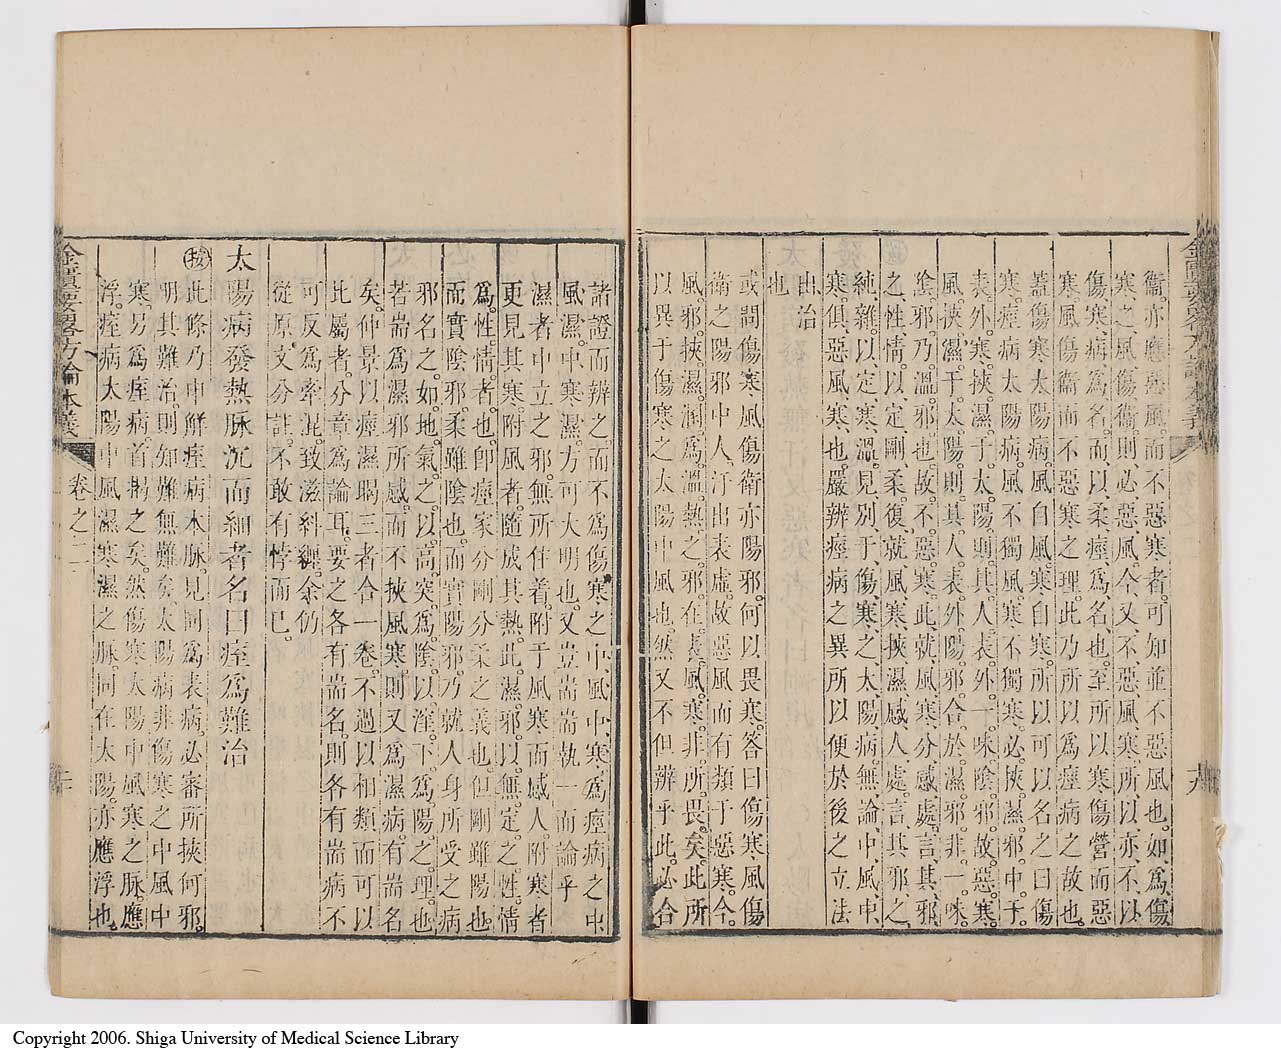 衞亦應惡風而不惡寒者可知並不惡風也如爲傷
寒之風傷衞則必惡風今又不惡風寒所以亦不以
傷寒病爲名而以柔痙爲名也至所以寒傷營而惡
寒風傷衞而不惡寒之理此乃所以爲痙病之故也
蓋傷寒太陽病風自風寒自寒所以可以名之曰傷
寒痙病太陽病風不獨風寒不獨寒必挾濕邪中于
表外寒挾濕于太陽則其人表外一味陰邪故惡寒
風挾濕于太陽則其人表外陽邪合於濕邪非一味
陰邪乃溫邪也故不惡寒此就風寒分感處言其邪
之性情以定剛柔復就風寒挾濕感人處言其邪之
純雜以定寒溫見別于傷寒之太陽病無論中風中
寒俱惡風寒也嚴辨痙病之異所以便於後之立法
出治也
或問傷寒風傷衛亦陽邪何以畏寒答曰傷寒風傷
衛之陽邪中人汗出表虛故惡風而有類于惡寒今
風邪挾濕潤爲溫熱之邪在表風寒非所畏矣此所
以異于傷寒之太陽中風也然又不但辨乎此必合
諸證而辨之而不爲傷寒之中風中寒爲痙病之中
風濕中寒濕方可大明也又豈耑耑執一而論乎
濕者中立之邪無所住着附于風寒而感人附寒者
更見其寒附風者隨成其熱此濕邪以無定之性情
爲性情者也卽痙家分剛分柔之義也但剛雖陽也
而實陰邪柔雖陰也而實陽邪乃就人身所受之病
邪名之如地氣之以高突爲陰以漥下爲陽之理也
若耑爲濕邪所感而不挾風寒則又爲濕病有耑名
矣仲景以痙濕暍三者合一卷不過以相類而可以
此屬者分章爲論耳要之各有耑名則各有耑病不
可反爲牽混致滋糾纏余仍
從原文分註不敢有悖而已
太陽病發熱脉沉而細者名曰痙爲難治
按此條乃申解痙病本脉見同爲表病必審所挾何邪
明其難治則知難無難矣太陽病非傷寒之中風中
寒另爲痙病首揭之矣然傷寒太陽中風寒之脉應
浮痙病太陽中風濕寒濕之脉同在太陽亦應浮也
金匱要畧方論本義
卷之二
Copyright 2006. Shiga University of Medical Science Library